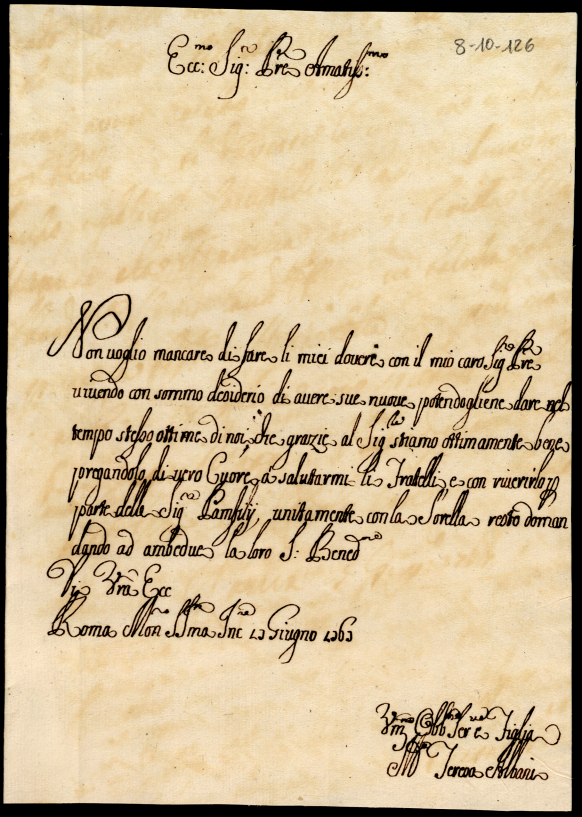 8-10-126
Ecc:mo Sig:re Pre Amatiss:mo
Non uoglio mancare di fare li miei doueri con il mio caro Sig.re Pre
uiuendo con sommo desiderio di auere sue nuoue, potendogliene dare nel
tempo stesso ottime di noi, che grazie al Sig.re stiamo ottimamente bene
pregandola di uero Cuore à salutarmi li Fratelli, e con riuerirlo p
parte delle Sig.re Pamfilij, unitamente con la Sorella resto doman
dando ad ambedue la loro S: Bened.ne
Di Vrã Ecc
Roma Mon SSma Inc Giugno
Obb Ser e Figlia
M.a Teresa Albani